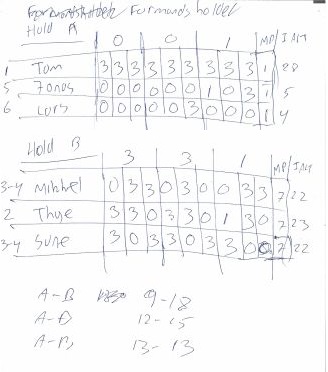 Formandsholder Formands holder
Hold A 0 0 1 MP/Int
1 Tom 3 3 3 3 3 3 3 3 3 1 28
5 Jonas 0 0 0 0 0 0 1 0 3 1 5
6 Lars 0 0 0 0 0 3 0 0 0 1 4
Hold B 3 3 1 MP/Int
3-4 Mikkel 0 3 3 0 3 0 0 3 3 7 22
2 Thyge 3 3 0 3 3 0 1 3 0 7 23
3-4 Sune 3 0 3 3 0 3 3 0 0 7 22
A-B 9-18
A-B 12-15
A-B 13-13